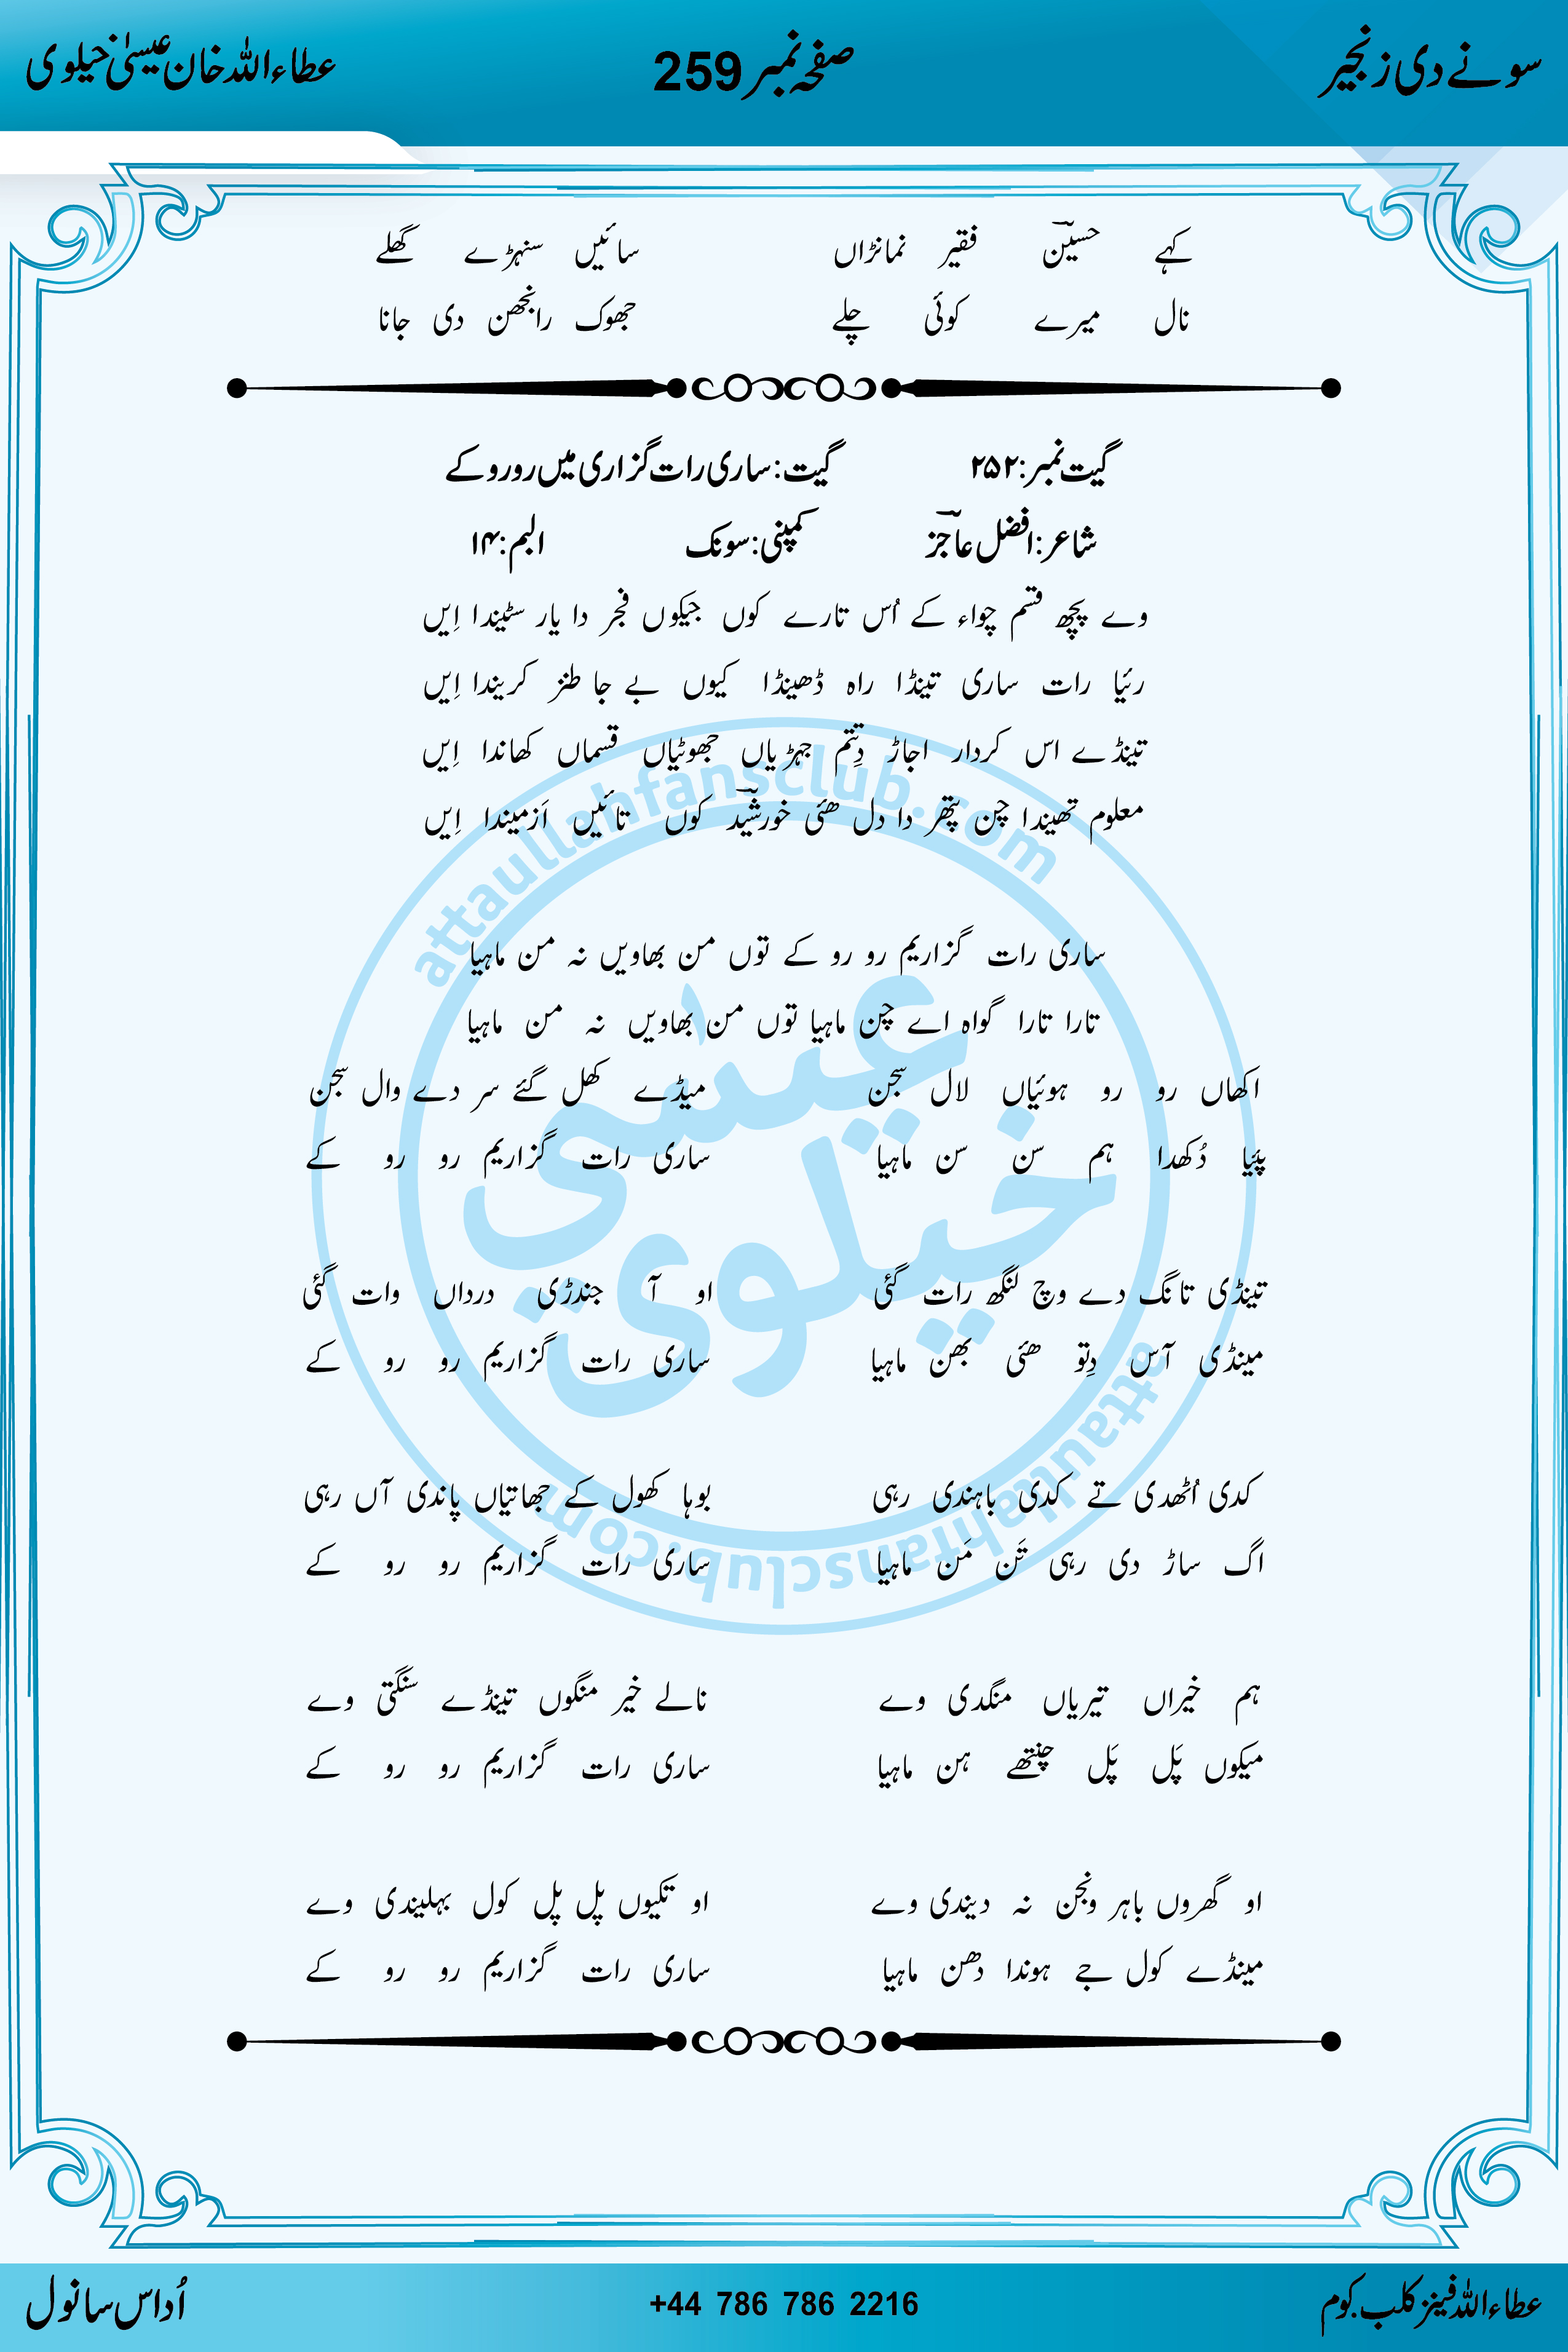 سونے دی زنجیر صفحہ نمبر 259 عطاءاللہ خان عیسیٰ خیلوی
کہے حسینؔ فقیر نمانڑاں سائیں سنہڑے گھلے
نال میرے کوئی چلے جھوک رانجھن دی جانا
گیت نمبر: ۲۵۲ گیت: ساری رات گزاری میں رو رو کے
شاعر: افضل عاجزؔ کمپنی: سونک البم: ۱۴
وے پچھ قسم چواء کے اُس تارے کوں جیکوں فجر دا یار سٹیندا اِیں
رئیا رات ساری تینڈا راہ ڈھینڈا کیوں بے جا طنز کریندا اِیں
تینڈے اس کردار اجاڑ دِتم جہڑیاں جھوٹیاں قسماں کھاندا اِیں
معلوم تھیندا چن پتھر دا دل ھئی خورشیدؔ کوں تائیں اَزمیندا اِیں
ساری رات گزاریم رو رو کے توں من بھاویں نہ من ماہیا
تارا تارا گواہ اے چن ماہیا توں من بھاویں نہ من ماہیا
اکھاں رو رو ہوئیاں لال سجن میڈے کھل گئے سر دے وال سجن
پئیا دُکھدا ہم سن سن ماہیا ساری رات گزاریم رو رو کے
تینڈی تانگ دے وچ لنگھ رات گئی او آ جندڑی درداں وات گئی
مینڈی آس دِتو ھئی بھن ماہیا ساری رات گزاریم رو رو کے
کدی اُٹھدی تے کدی باہندی رہی بوہا کھول کے جھاتیاں پاندی آں رہی
اگ ساڑ دی رہی تَن مَن ماہیا ساری رات گزاریم رو رو کے
ہم خیراں تیریاں منگدی وے نالے خیر منگوں تینڈے سنگتی وے
میکوں پَل پَل چنتھے ہن ماہیا ساری رات گزاریم رو رو کے
او گھروں باہر ونجن نہ دیندی وے او تکیوں پل پل کول بہلیندی وے
مینڈے کول جے ہوندا دھن ماہیا ساری رات گزاریم رو رو کے
attaullahfansclub.com
عیسیٰ
خیلوی
attaullahfansclub.com
عطاءاللہ فینز کلب.کوم +44 786 786 2216 اُداس سانول